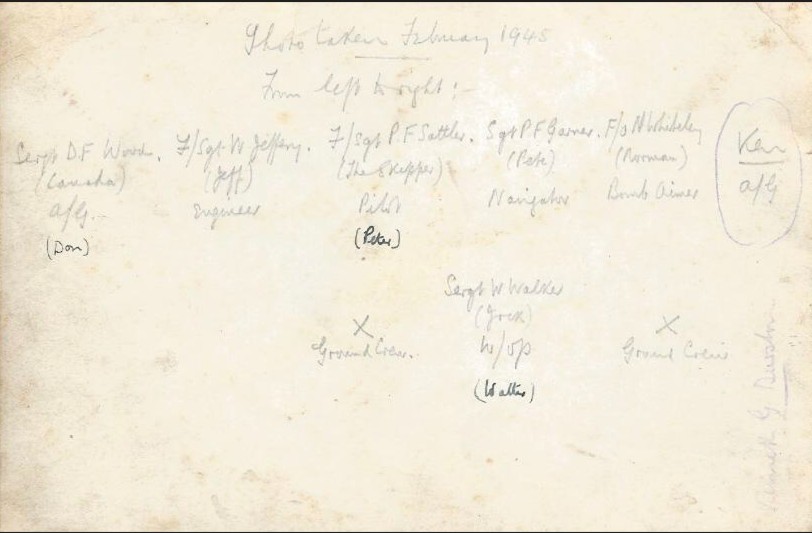 Photo taken February 1945
From left to right:
Sergt D.F Wood. F/Sgt W Jeffery. F/Sgt P.F Sattler. Sgt P.F Garner. F/o N Whiteley
(Canada) (Jeff) (The Skipper) (Pete) (Norman)
A/G. Engineer Pilot Navigator Bomb Aimer
(Don) (Peter)
Ken
A/G
Sergt W Walker
(Jock)
X W/op X
Ground Crew. Ground Crew
(Walter)
G